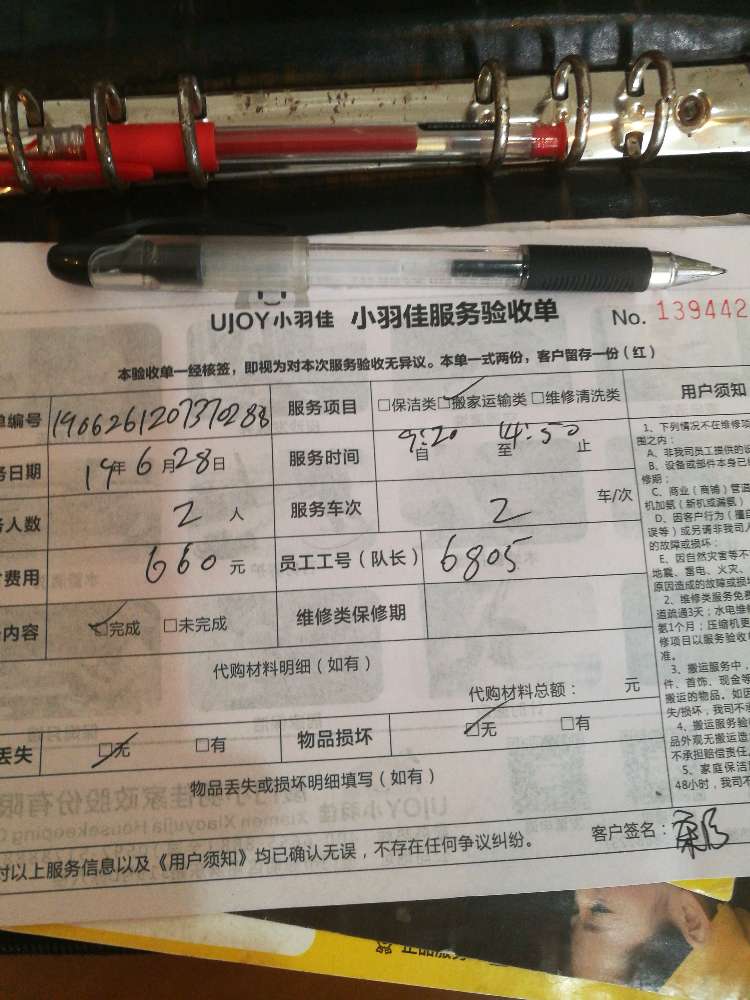 UJOY小羽佳 小羽佳服务验收单 No. 139442
本验收单一经核签，即视为对本次服务验收无异议。本单一式两份，客户留存一份（红）
单编号 1906261207370288 服务项目 □保洁类☑搬家运输类□维修清洗类 用户须知
务日期 19年6月28日 服务时间 9:20自 至14:50止
务人数 2人 服务车次 2 车/次
费用 660元 员工工号（队长） 6805
内容 ☑完成 □未完成 维修类保修期
代购材料明细（如有）
代购材料总额： 元
丢失 ☑无 □有 物品损坏 ☑无 □有
物品丢失或损坏明细填写（如有）
对以上服务信息以及《用户须知》均已确认无误，不存在任何争议纠纷。 客户签名：
1、下列情况不在维修项
围之内：
A、非我司员工提供的设
B、设备或部件本身已
修期；
C、商业（商铺）管道
机加氨（新机或漏氨）
D、因客户行为（擅自
误等）或另请非我司人
的故障或损坏；
E、因自然灾害等不
地震、雷电、火灾、
原因造成的故障或损
2、维修类服务免费
道疏通3天；水电维
氨1个月；压缩机更
修项目以服务验收
准。
3、搬运服务中，
件、首饰、现金等
搬运的物品。如因
失/损坏，我司不承
4、搬运服务验
品外观无搬运造
不承担赔偿责任。
5、家庭保洁
48小时，我司不